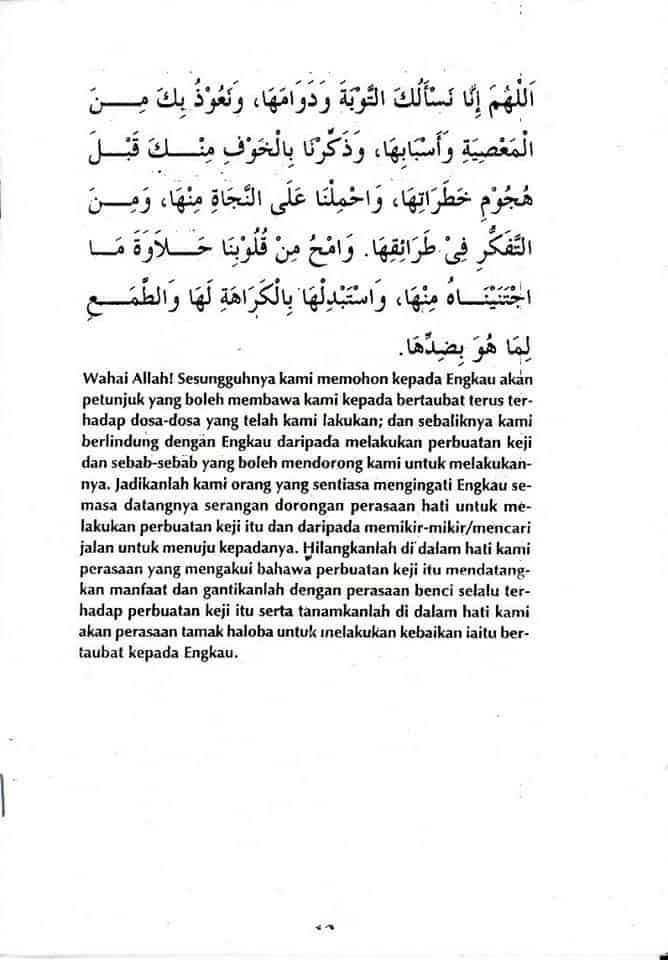 اَللّٰهُمَّ إِنَّا نَسْأَلُكَ التَّوْبَةَ وَدَوَامَهَا، وَنَعُوْذُ بِكَ مِـــنَ
الْمَعْصِيَةِ وَأَسْبَابِهَا، وَذَكِّرْنَا بِالْخَوْفِ مِنْـــكَ قَبْـــلَ
هُجُوْمِ خَطَرَاتِهَا، وَاحْمِلْنَا عَلَى النَّجَاةِ مِنْهَا، وَمِـــنَ
التَّفَكُّرِ فِيْ طَرَائِقِهَا. وَامْحُ مِنْ قُلُوْبِنَا حَـــلَاوَةَ مَـــا
اجْتَنَيْنَـــاهُ مِنْهَا، وَاسْتَبْدِلْهَا بِالْكَرَاهَةِ لَهَا وَالطَّمَـــعِ
لِمَا هُوَ بِضِدِّهَا.
Wahai Allah! Sesungguhnya kami memohon kepada Engkau akan
petunjuk yang boleh membawa kami kepada bertaubat terus ter-
hadap dosa-dosa yang telah kami lakukan; dan sebaliknya kami
berlindung dengan Engkau daripada melakukan perbuatan keji
dan sebab-sebab yang boleh mendorong kami untuk melakukan-
nya. Jadikanlah kami orang yang sentiasa mengingati Engkau se-
masa datangnya serangan dorongan perasaan hati untuk me-
lakukan perbuatan keji itu dan daripada memikir-mikir/mencari
jalan untuk menuju kepadanya. Hilangkanlah di dalam hati kami
perasaan yang mengakui bahawa perbuatan keji itu mendatang-
kan manfaat dan gantikanlah dengan perasaan benci selalu ter-
hadap perbuatan keji itu serta tanamkanlah di dalam hati kami
akan perasaan tamak haloba untuk melakukan kebaikan iaitu ber-
taubat kepada Engkau.